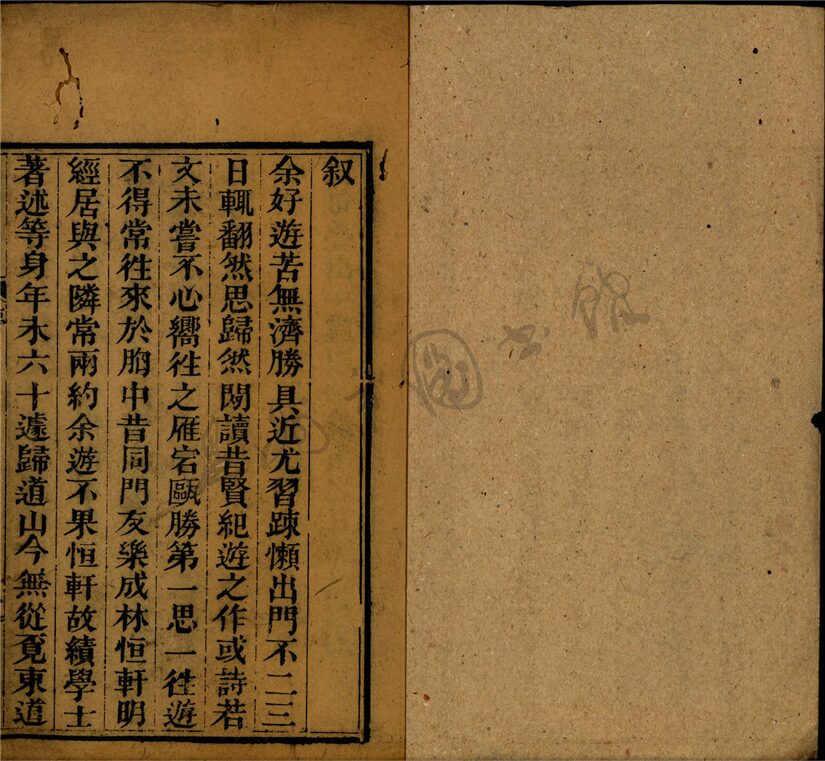 叙
余好遊苦無濟勝具近尤習踈懶出門不二三
日輒翻然思歸然閱讀昔賢紀遊之作或詩若
文未嘗不心嚮徃之雁宕甌勝第一思一徃遊
不得常徃來於胸中昔同門友樂成林恒軒明
經居與之隣常兩約余遊不果恒軒故績學士
著述等身年未六十遽歸道山今無從覓東道